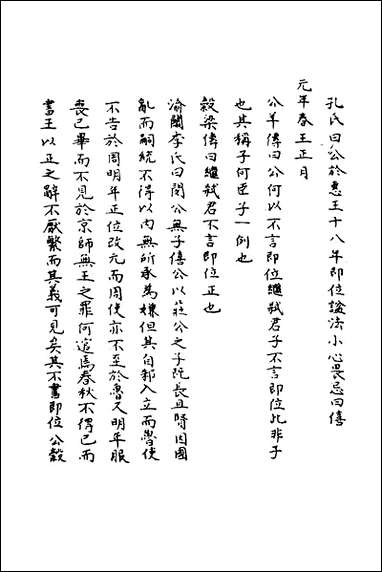 孔氏曰公於惠王十八年即位諡法小心畏忌曰僖
元年春王正月
公羊傳曰公何以不言即位繼弒君子不言即位此非子
也其稱子何臣子一例也
穀梁傳曰繼弒君不言即位正也
渝關李氏曰閔公無子僖公以莊公之子既長且賢因國
亂而嗣統不得以內無所承為嫌但其自邾入立而魯使
不告於周明年正位改元而周使亦不至於魯又明年服
喪已畢而不見於京師無王之罪何逭焉春秋不得已而
書王以正之辭不厭繁而其義可見矣其不書即位公穀